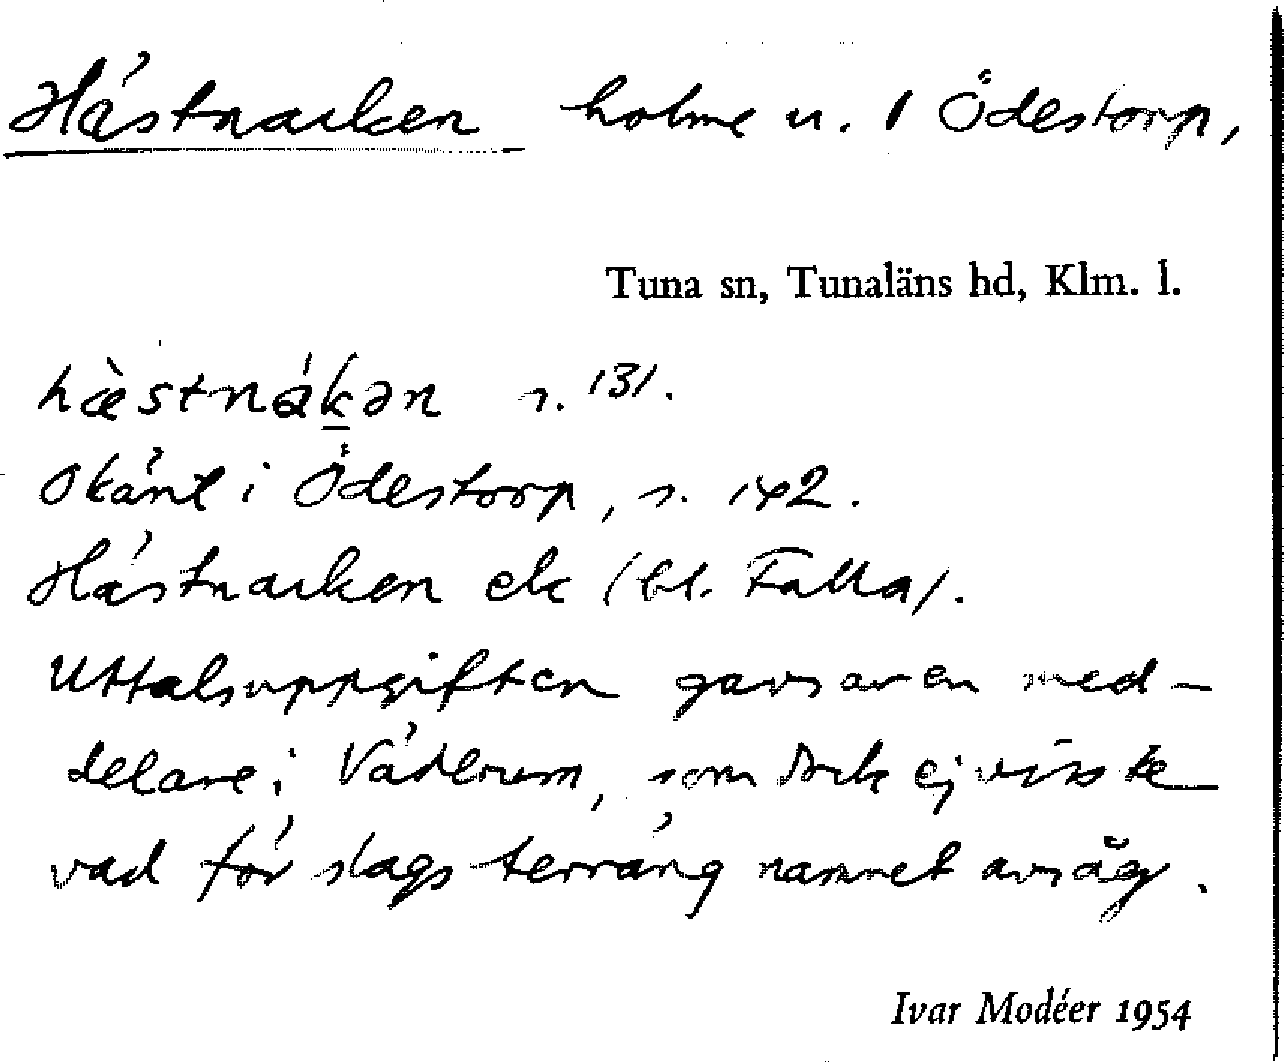 Hästnacken holme u. 1 Ödestorp,
Tuna sn, Tunaläns hd, Klm. l.
hæ̀stnákən s. 131.
Okänt i Ödestorp, s. 142.
Hästnacken ek (bl. Falla).
Uttalsuppgiften gavs av en med-
delare i Vädbrum, som dock ej visste
vad för slags terräng namnet avsåg.
Ivar Modéer 1954